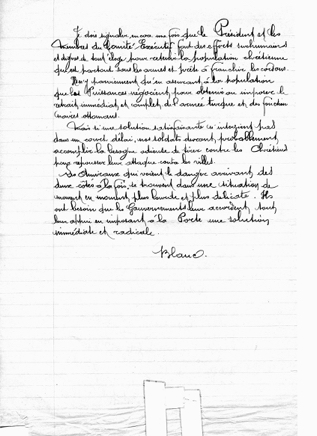 Je dois signaler encore une fois que le Président et les
membres du Comité Exécutif font des efforts surhumains
et dignes de tout éloge pour retenir la population chrétienne
qui est partout sous les armes et prête à franchir les cordons.
Ils y parviennent qu'en assurant à la population
que les Puissances négocient pour obtenir ou imposer le
retrait immédiat et complet de l'armée turque et des fonction
naires ottomans.
Mais si une solution satisfaisante n'intervient pas
dans un court délai, nos soldats devront, probablement,
accomplir la besogne odieuse de tirer contre les Chrétiens
pour repousser leur attaque contre les villes.
Les Amiraux qui voient le danger arrivant des
deux côtés à la fois, se trouvent dans une situation de
moment en moment plus lourde et plus délicate. Ils
ont besoin que les Gouvernements leur accordent, tout
leur appui en imposant à la Porte une solution
immédiate et radicale.
Blanc.